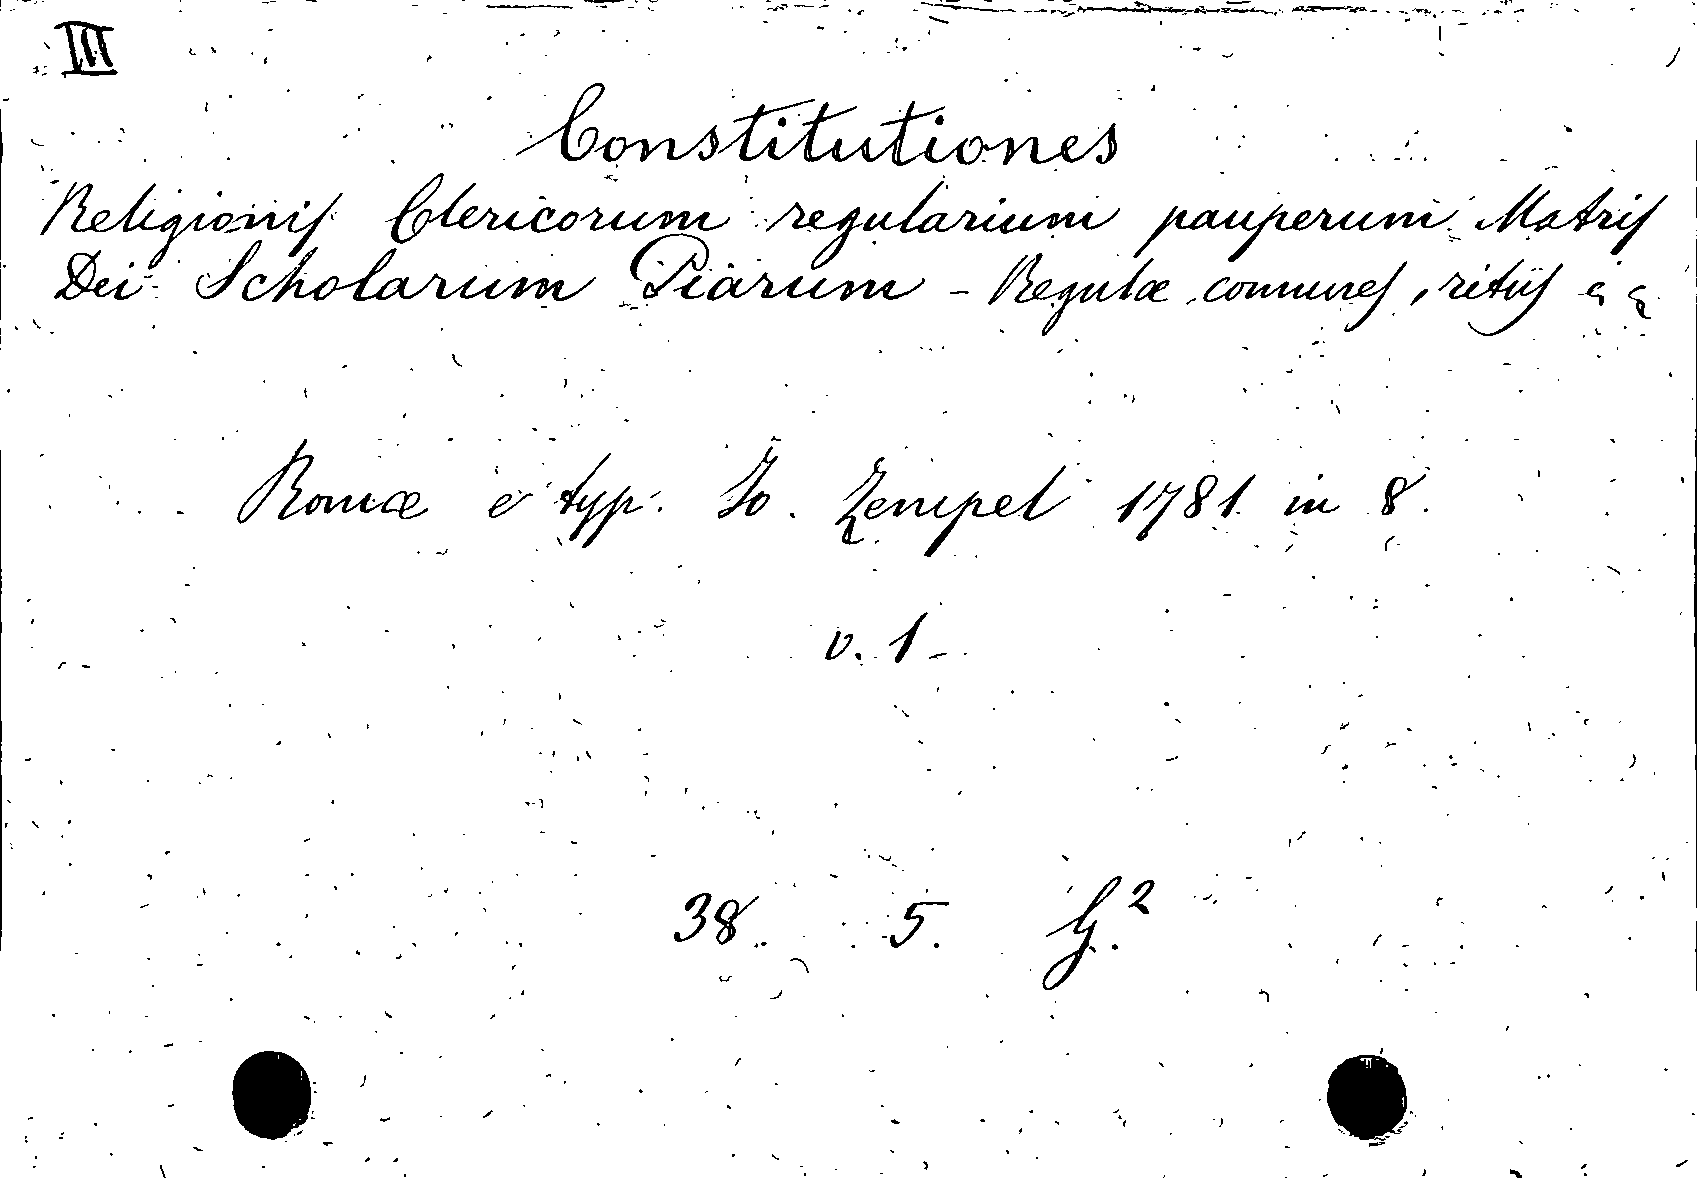 III
Constitutiones
Religionis Clericorum regularium pauperum Matris
Dei Scholarum Piarum - Regulæ communes, ritus
Romæ e typ. Io. Zempel 1781 in 8.
v. 1
38. 5. G.2